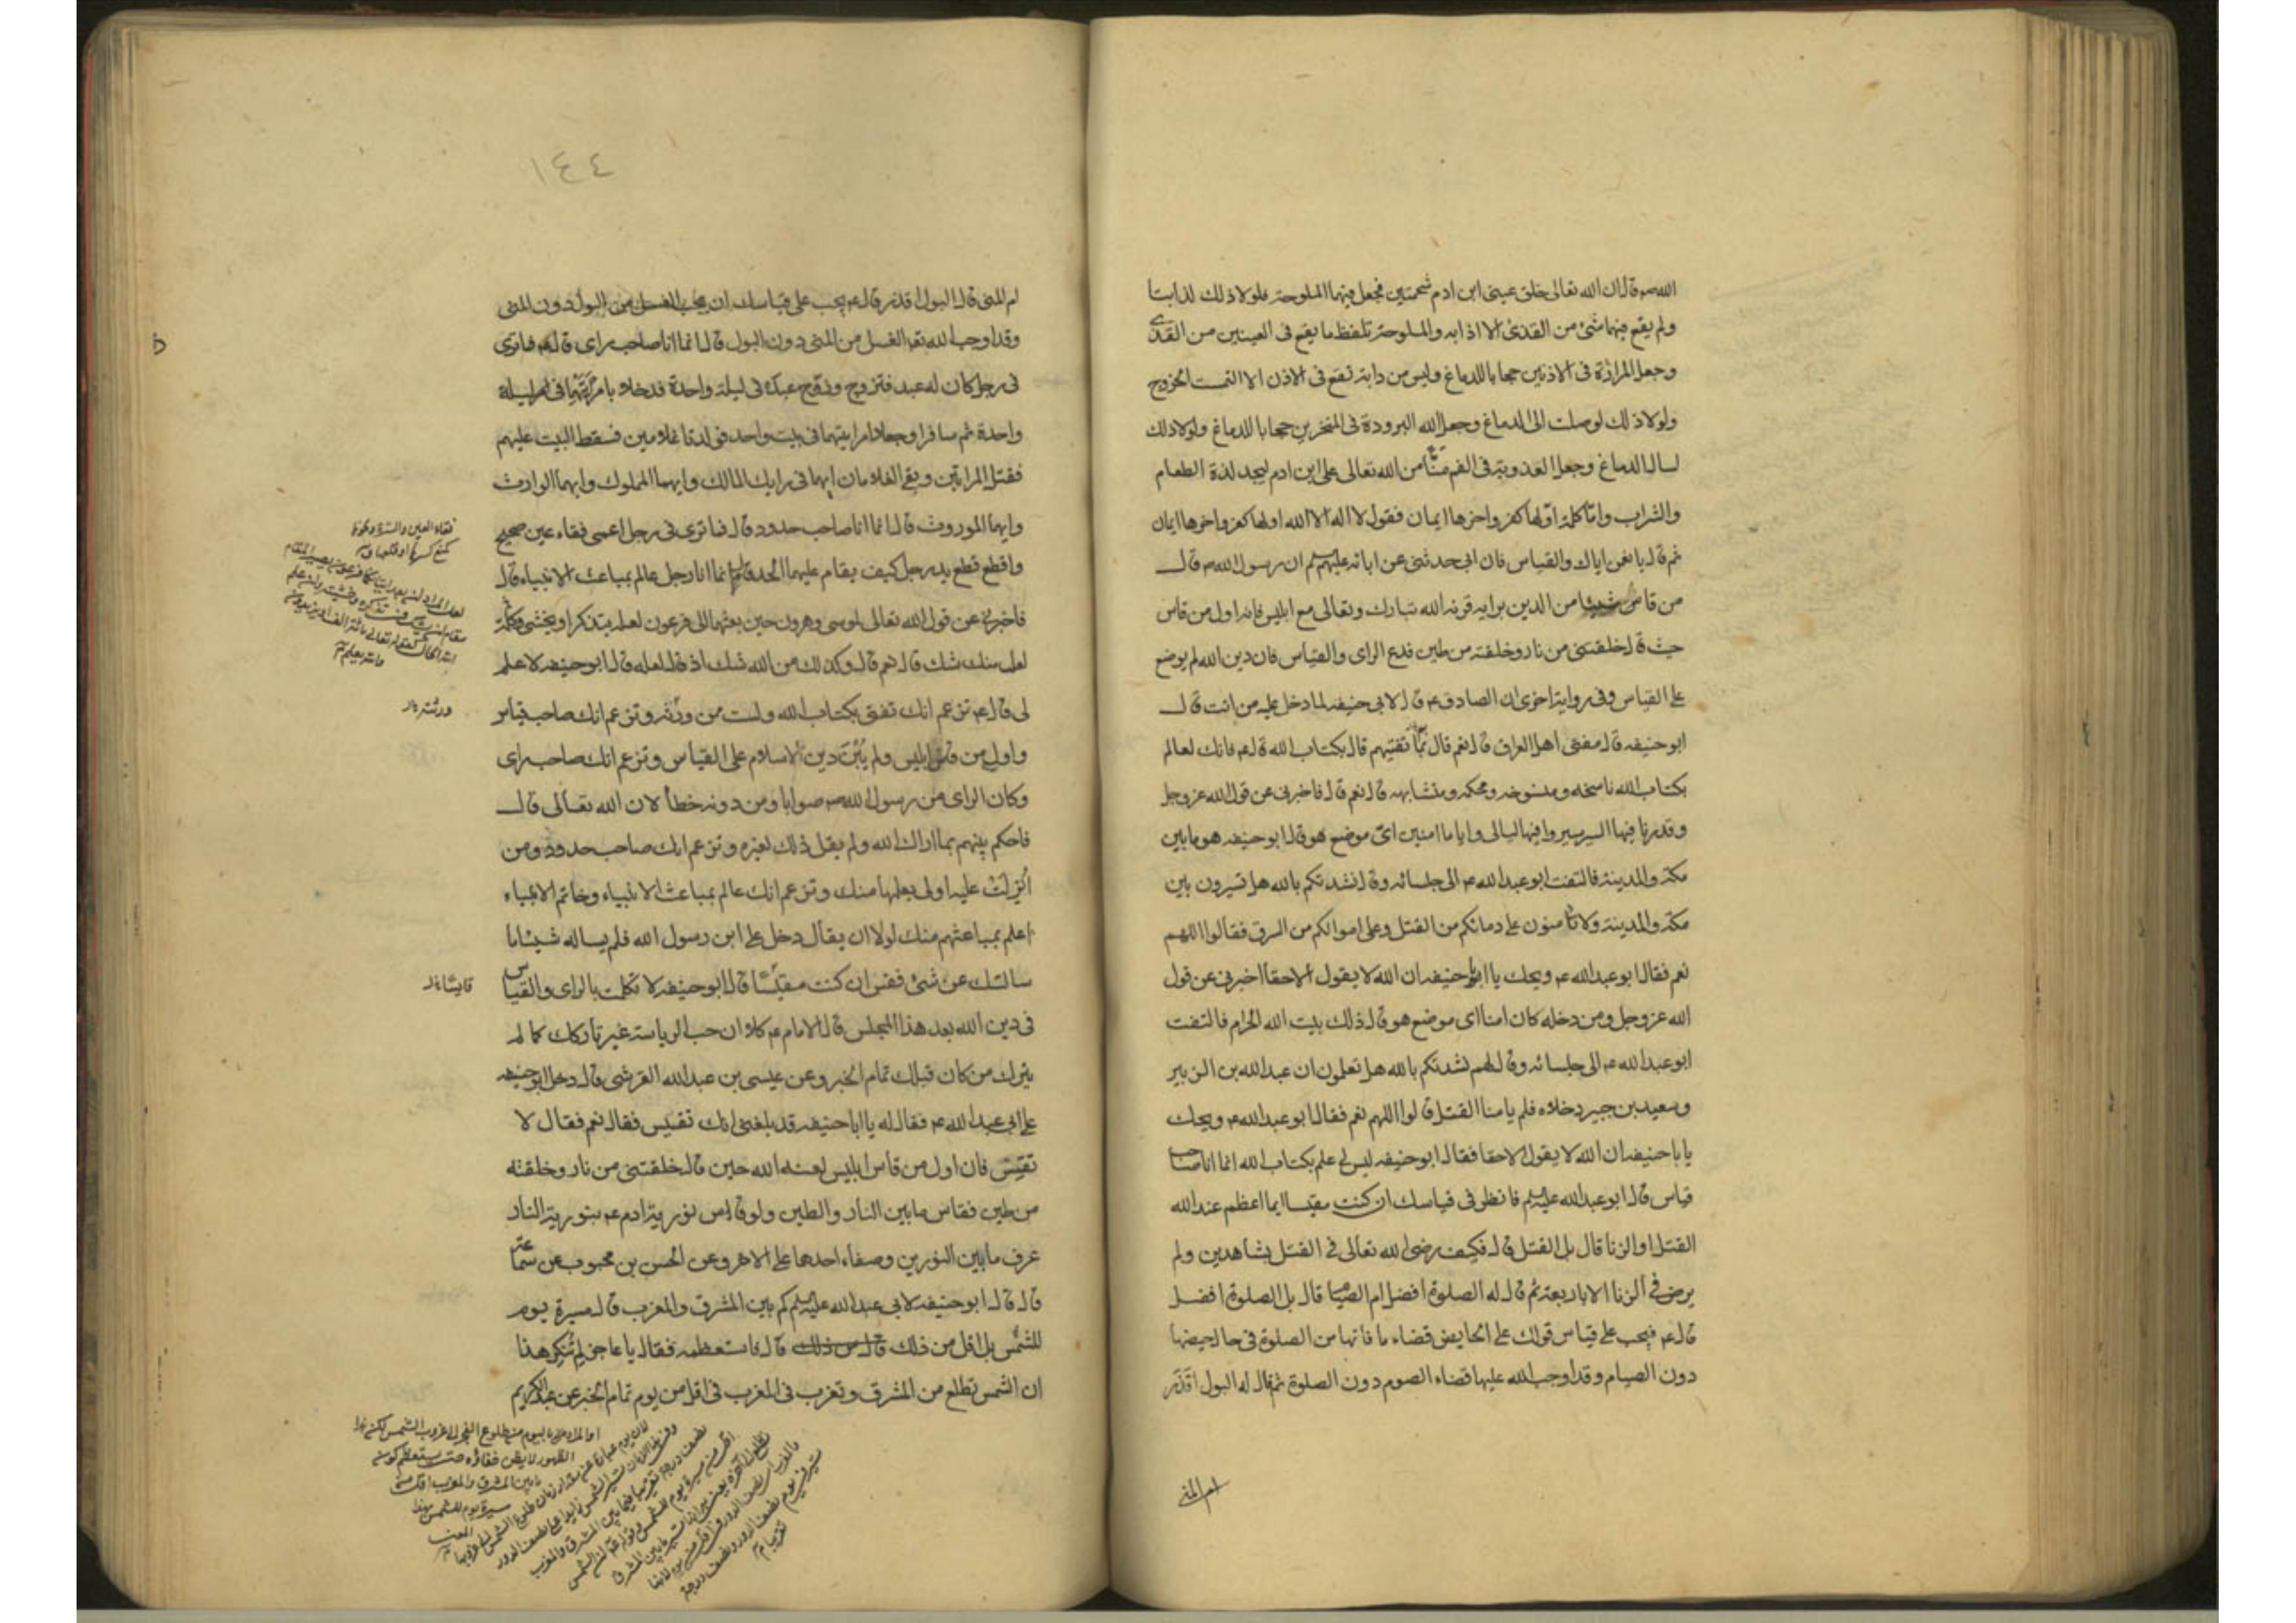 الله ص قال ان الله تعالى خلق عينى ابن ادم شحمتين فجعل فيهما الملوحة فلولا ذلك لذابتا
ولم يقع فيهما شئ من القذى الا اذابه والملوحة تلفظ ما يقع فى العينين من القذى
وجعل المرارة فى الاذنين حجابا للدماغ وليس من دابة تقع فى الاذن الا التمست الخروج
ولولا ذلك لوصلت الى الدماغ وجعل الله البرودة فى المنخرين حجابا للدماغ ولولا ذلك
لسال الدماغ وجعل العذوبة فى الفم منا من الله تعالى على ابن ادم ليجد لذة الطعام
والشراب واما كلمة اولها كفر واخرها ايمان فقول لا اله الا الله اولها كفر واخرها ايمان
ثم قال يا نعمن اياك والقياس فان ابى حدثنى عن ابائه عليهم ان رسول الله ص قال
من قاس شيئا من الدين برايه قرنه الله تبارك وتعالى مع ابليس فانه اول من قاس
حيث قال خلقتنى من نار وخلقته من طين فدع الراى والقياس فان دين الله لم يوضع
على القياس وفى رواية اخرى ان الصادق ع قال لابى حنيفه لما دخل عليه من انت قال
ابو حنيفه قال مفتى اهل العراق قال نعم قال بما تفتيهم قال بكتاب الله قال ع فانك لعالم
بكتاب الله ناسخه ومنسوخه ومحكمه ومتشابهه قال نعم قال فاخبرنى عن قول الله عز وجل
وقدرنا فيها السير سيروا فيها ليالى واياما امنين اى موضع هو قال ابو حنيفه هو ما بين
مكة والمدينة فالتفت ابو عبد الله ع الى جلسائه وقال نشدتكم بالله هل تسيرون بين
مكة والمدينة ولا تأمنون على دمائكم من القتل وعلى اموالكم من السرق فقالوا اللهم
نعم فقال ابو عبد الله ع ويحك يا ابا حنيفه ان الله لا يقول الا حقا اخبرنى عن قول
الله عز وجل ومن دخله كان امنا اى موضع هو قال ذلك بيت الله الحرام فالتفت
ابو عبد الله ع الى جلسائه وقال لهم نشدتكم بالله هل تعلمون ان عبد الله بن الزبير
وسعيد بن جبير دخلاه فلم يامنا القتل قالوا اللهم نعم فقال ابو عبد الله ع ويحك
يا باحنيفه ان الله لا يقول الا حقا فقال ابو حنيفه ليس لى علم بكتاب الله انما انا صاحب
قياس قال ابو عبد الله عليه فانظر فى قياسك ان كنت مقيسا ايما اعظم عند الله
القتل او الزنا قال بل القتل قال فكيف رضى الله تعالى فى القتل بشاهدين ولم
يرض فى الزنا الا باربعة ثم قال له الصلوة افضل ام الصيام قال بل الصلوة افضل
قال ع فيجب على قياس قولك على الحايض قضاء ما فاتها من الصلوة فى حال حيضها
دون الصيام وقد اوجب الله عليها قضاء الصوم دون الصلوة ثم قال له البول اقذر
ام المنى
١٤٤
ام المنى قال البول اقذر قال ع يجب على قياسك ان يجب الغسل من البول دون المنى
وقد اوجب الله تعه الغسل من المنى دون البول قال انما انا صاحب راى قال ع فما ترى
فى رجل كان له عبد فتزوج وزوج عبده فى ليلة واحدة فدخلا بامرتيهما فى ليلة
واحدة ثم سافرا وجعلا امراتيهما فى بيت واحد فولدتا غلامين فسقط البيت عليهم
فقتل المراتين وبقى الغلامان ايهما فى رايك المالك وايهما المملوك وايهما الوارث
وايهما الموروث قال انما انا صاحب حدود قال فما ترى فى رجل اعمى فقاء عين صحيح
واقطع قطع يد رجل كيف يقام عليهما الحد قال انما انا رجل عالم بمباعث الانبياء قال
فاخبرنى عن قول الله تعالى لموسى وهرون حين بعثهما الى فرعون لعله يتذكر او يخشى
لعل منك شك قال نعم قال وكذلك من الله شك اذ قال لعله قال ابو حنيفه لا علم
لى قال ع تزعم انك تفتى بكتاب الله ولست ممن ورثه وتزعم انك صاحب قياس
واول من قاس ابليس ولم يبن دين الاسلام على القياس وتزعم انك صاحب راى
وكان الراى من رسول الله ص صوابا ومن دونه خطأ لان الله تعالى قال
فاحكم بينهم بما اراك الله ولم يقل ذلك لغيره وتزعم انك صاحب حدود ومن
انزلت عليه اولى بعلمها منك وتزعم انك عالم بمباعث الانبياء وخاتم الانبياء
اعلم بمباعثهم منك لولا ان يقال دخل على ابن رسول الله فلم يساله شيئا ما
سالتك عن شئ فقس ان كنت مقيسا قال ابو حنيفه لا تكلمت بالراى والقياس
فى دين الله بعد هذا المجلس قال الامام ع كلا ان حب الرياسة غير تاركك كما لم
يترك من كان قبلك تمام الخبر وعن عيسى بن عبد الله القرشى قال دخل ابو حنيفه
على ابى عبد الله ع فقال له يا ابا حنيفه قد بلغنى انك تقيس فقال نعم فقال لا
تقيس فان اول من قاس ابليس لعنه الله حين قال خلقتنى من نار وخلقته
من طين فقاس ما بين النار والطين ولو قاس نورية ادم ع بنورية النار
عرف ما بين النورين وصفاء احدها على الاخر وعن الحسن بن محبوب عن سماعة
قال قال ابو حنيفه لابى عبد الله عليه كم بين المشرق والمغرب قال مسيرة يوم
للشمس بل اقل من ذلك قال فاستعظمه فقال يا عاجز لم تنكر هذا
ان الشمس تطلع من المشرق وتغرب فى المغرب فى اقل من يوم تمام الخبر عن عبد الكريم